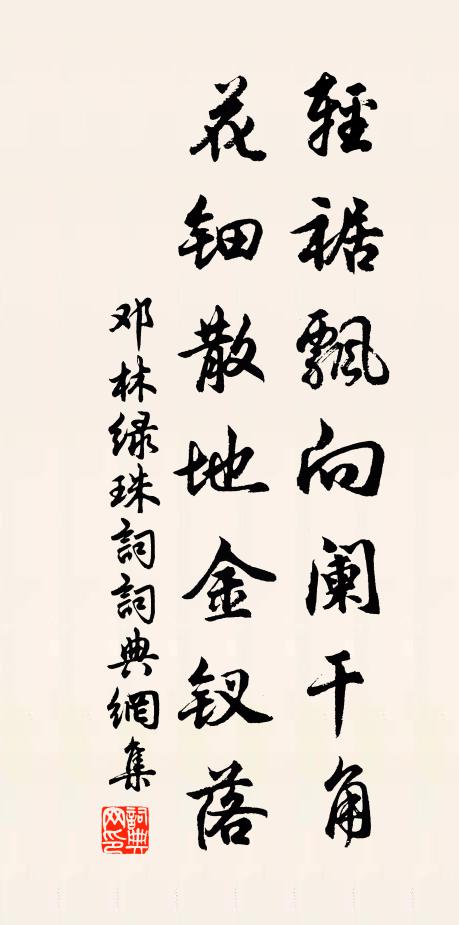 輕裾飄向阑干角
花钿散地金钗落
邓林绿珠詞詞典網集
詞典网印